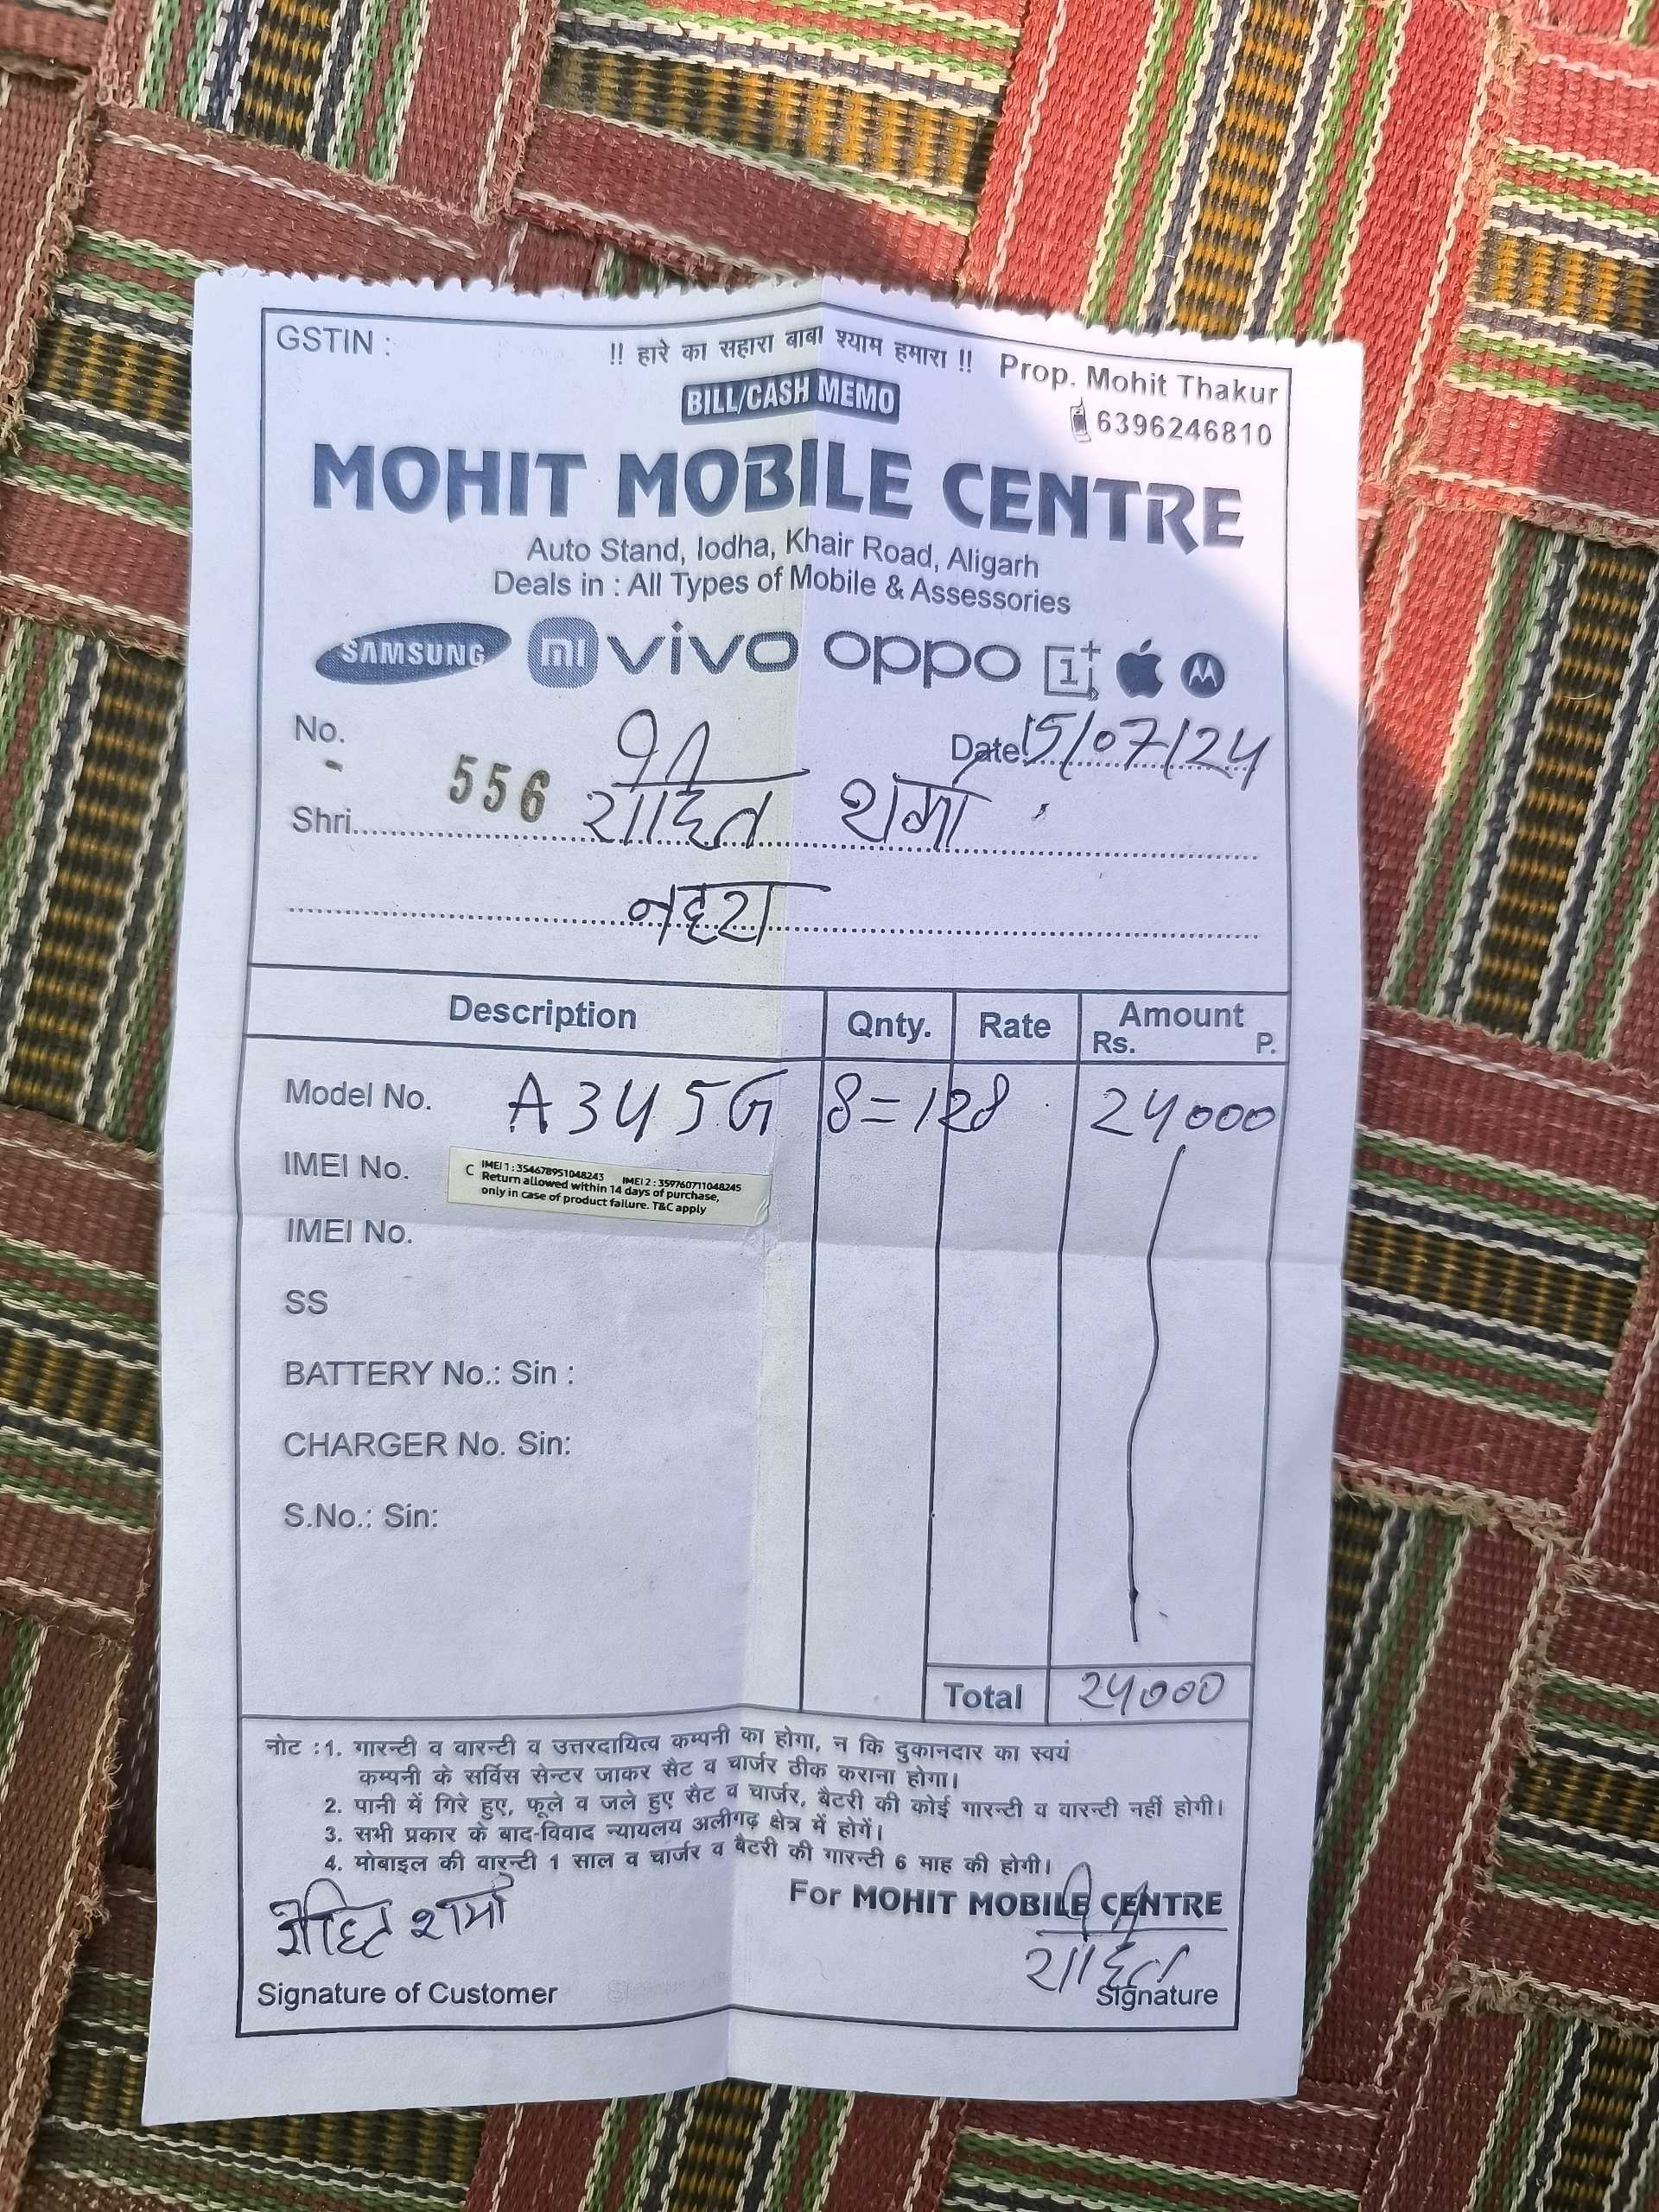 GSTIN :
!! हारे का सहारा बाबा श्याम हमारा !!
Prop. Mohit Thakur
6396246810
BILL/CASH MEMO
MOHIT MOBILE CENTRE
Auto Stand, lodha, Khair Road, Aligarh
Deals in : All Types of Mobile & Assessories
SAMSUNG mi vivo oppo 1+
No. 556
Date 15/07/24
Shri. रोहित शर्मा
नहरा
Description Qnty. Rate Amount
Rs. P.
Model No. A34 5G 8=128 24000
IMEI No. C IMEI 1 : 354678951048243 IMEI 2 : 359760711048245
Return allowed within 14 days of purchase,
only in case of product failure. T&C apply
IMEI No.
SS
BATTERY No.: Sin :
CHARGER No. Sin:
S.No.: Sin:
Total 24000
नोट :1. गारन्टी व वारन्टी व उत्तरदायित्व कम्पनी का होगा, न कि दुकानदार का स्वयं
कम्पनी के सर्विस सेन्टर जाकर सैट व चार्जर ठीक कराना होगा।
2. पानी में गिरे हुए, फूले व जले हुए सैट व चार्जर, बैटरी की कोई गारन्टी व वारन्टी नहीं होगी।
3. सभी प्रकार के बाद-विवाद न्यायलय अलीगढ़ क्षेत्र में होगें।
4. मोबाइल की वारन्टी 1 साल व चार्जर व बैटरी की गारन्टी 6 माह की होगी।
For MOHIT MOBILE CENTRE
रोहित शर्मा
Signature of Customer
Signature